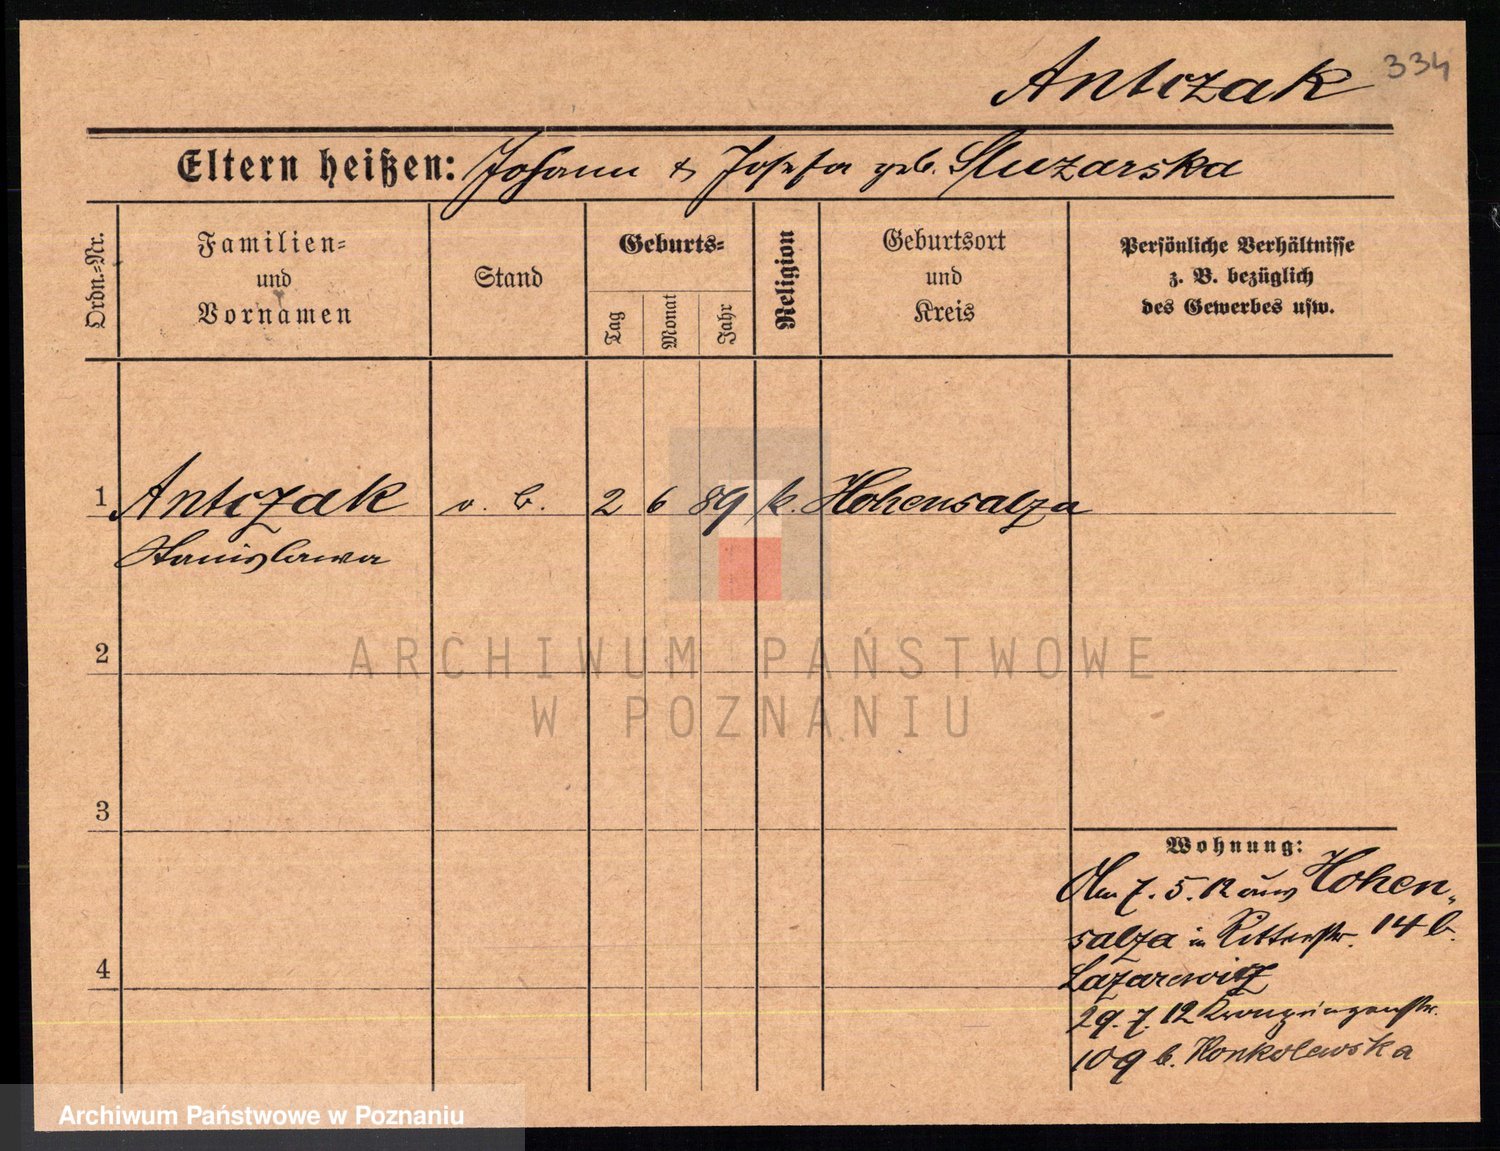 Antczak 334
Eltern heißen: Johann & Josefa geb. Sluzarska
Ordn.-Nr.
Familien-
und
Vornamen
Stand
Geburts-
Tag
Monat
Jahr
Religion
Geburtsort
und
Kreis
Persönliche Verhältnisse
z. B. bezüglich
des Gewerbes usw.
1 Antczak o. b. 2 6 89 k. Hohensalza
Stanislawa
2
ARCHIWUM PAŃSTWOWE
W POZNANIU
3
Wohnung:
Am 7. 5. 12 aus Hohen-
salza in Ritterstr. 14 b.
4
Lazarewitz
29. 7. 12 Kronprinzenstr.
109 b.
Archiwum Państwowe w Poznaniu